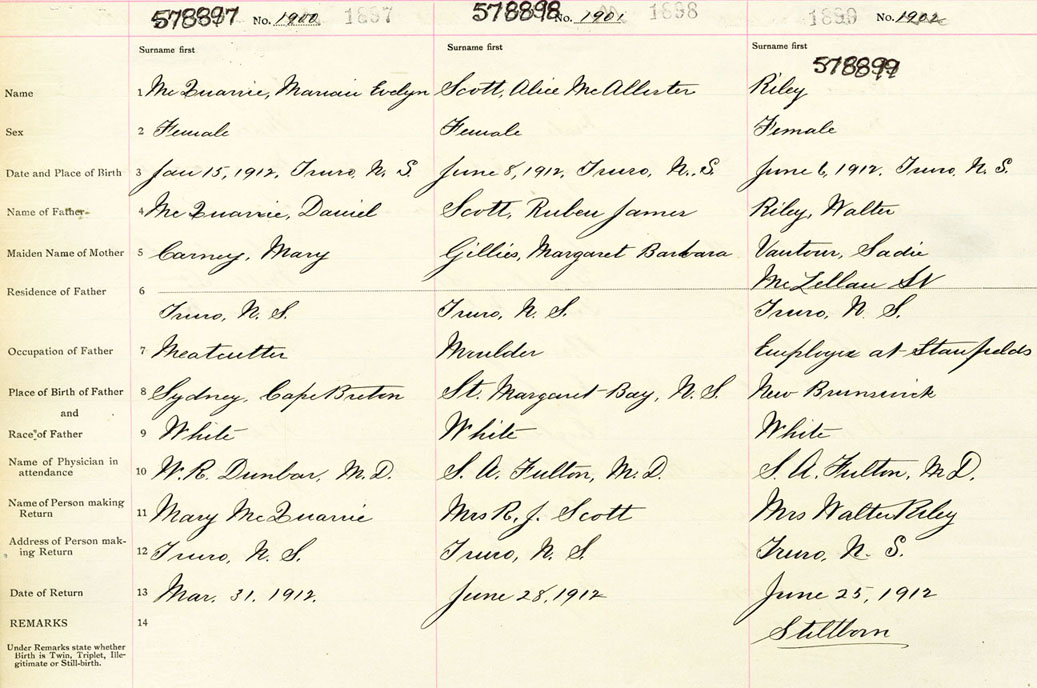 578897 No. 1900 1897 578898 No. 1901 1898 1899 No. 1902
Surname first Surname first Surname first
578899
Name 1 McQuarrie, Marian Evelyn Scott, Alice McAllister Riley
Sex 2 Female Female Female
Date and Place of Birth 3 Jan 15, 1912, Truro, N. S. June 8, 1912, Truro, N. S. June 6, 1912, Truro, N. S.
Name of Father 4 McQuarrie, Daniel Scott, Ruben James Riley, Walter
Maiden Name of Mother 5 Carney, Mary Gillies, Margaret Barbara Vautour, Sadie
McLellan St
Residence of Father 6
Truro, N. S. Truro, N. S. Truro, N. S.
Occupation of Father 7 Meatcutter Moulder Employee at Stanfields
Place of Birth of Father 8 Sydney, Cape Breton St. Margaret Bay, N. S. New Brunswick
and
Race of Father 9 White White White
Name of Physician in
attendance 10 W. R. Dunbar, M. D. S. A. Fulton, M. D. S. A. Fulton, M. D.
Name of Person making
Return 11 Mary McQuarrie Mrs R. J. Scott Mrs Walter Riley
Address of Person mak-
ing Return 12 Truro, N. S. Truro, N. S. Truro, N. S.
Date of Return 13 Mar. 31, 1912. June 28, 1912 June 25, 1912
REMARKS 14 Stillborn
Under Remarks state whether
Birth is Twin, Triplet, Ille-
gitimate or Still-birth.